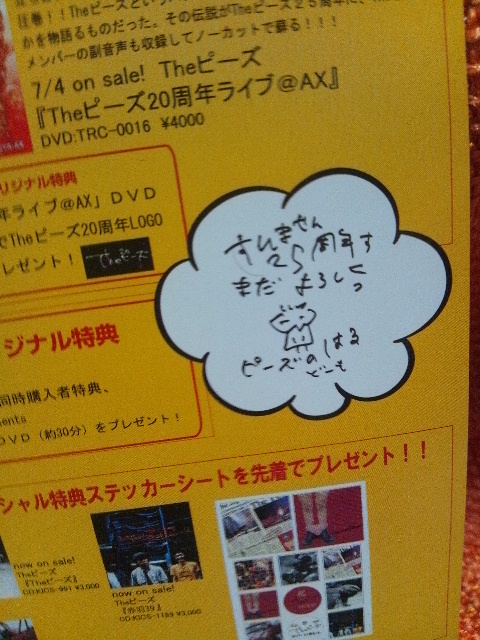 圧巻！Theピーズという
かを物語るものだった。その伝説がTheピーズ２５周年に、
メンバーの副音声も収録してノーカットで蘇る！！！
7/4 on sale! Theピーズ
『Theピーズ20周年ライブ＠AX』
DVD:TRC-0016 ¥4000
リジナル特典
年ライブ@AX」ＤＶＤ
でTheピーズ20周年LOGO
レゼント！
Theピーズ
すんません
25周年す
まだ よろしく
ピーズの はる
どーも
ジナル特典
同時購入者特典、
ents
DVD（約30分）をプレゼント！
シャル特典ステッカーシートを先着でプレゼント！！
now on sale!
Theピーズ
『Theピーズ』
CD:KICS-991 ¥3,000
now on sale!
Theピーズ
『赤羽39』
CD:KICS-1189 ¥3,000